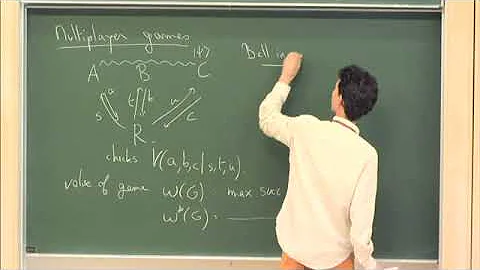 Multiplayer games
|ψ>
A B C
s a t b u c
R.
checks V(a,b,c|s,t,u).
value of game ω(G) = max succ
ω*(G) = ______
Bell in